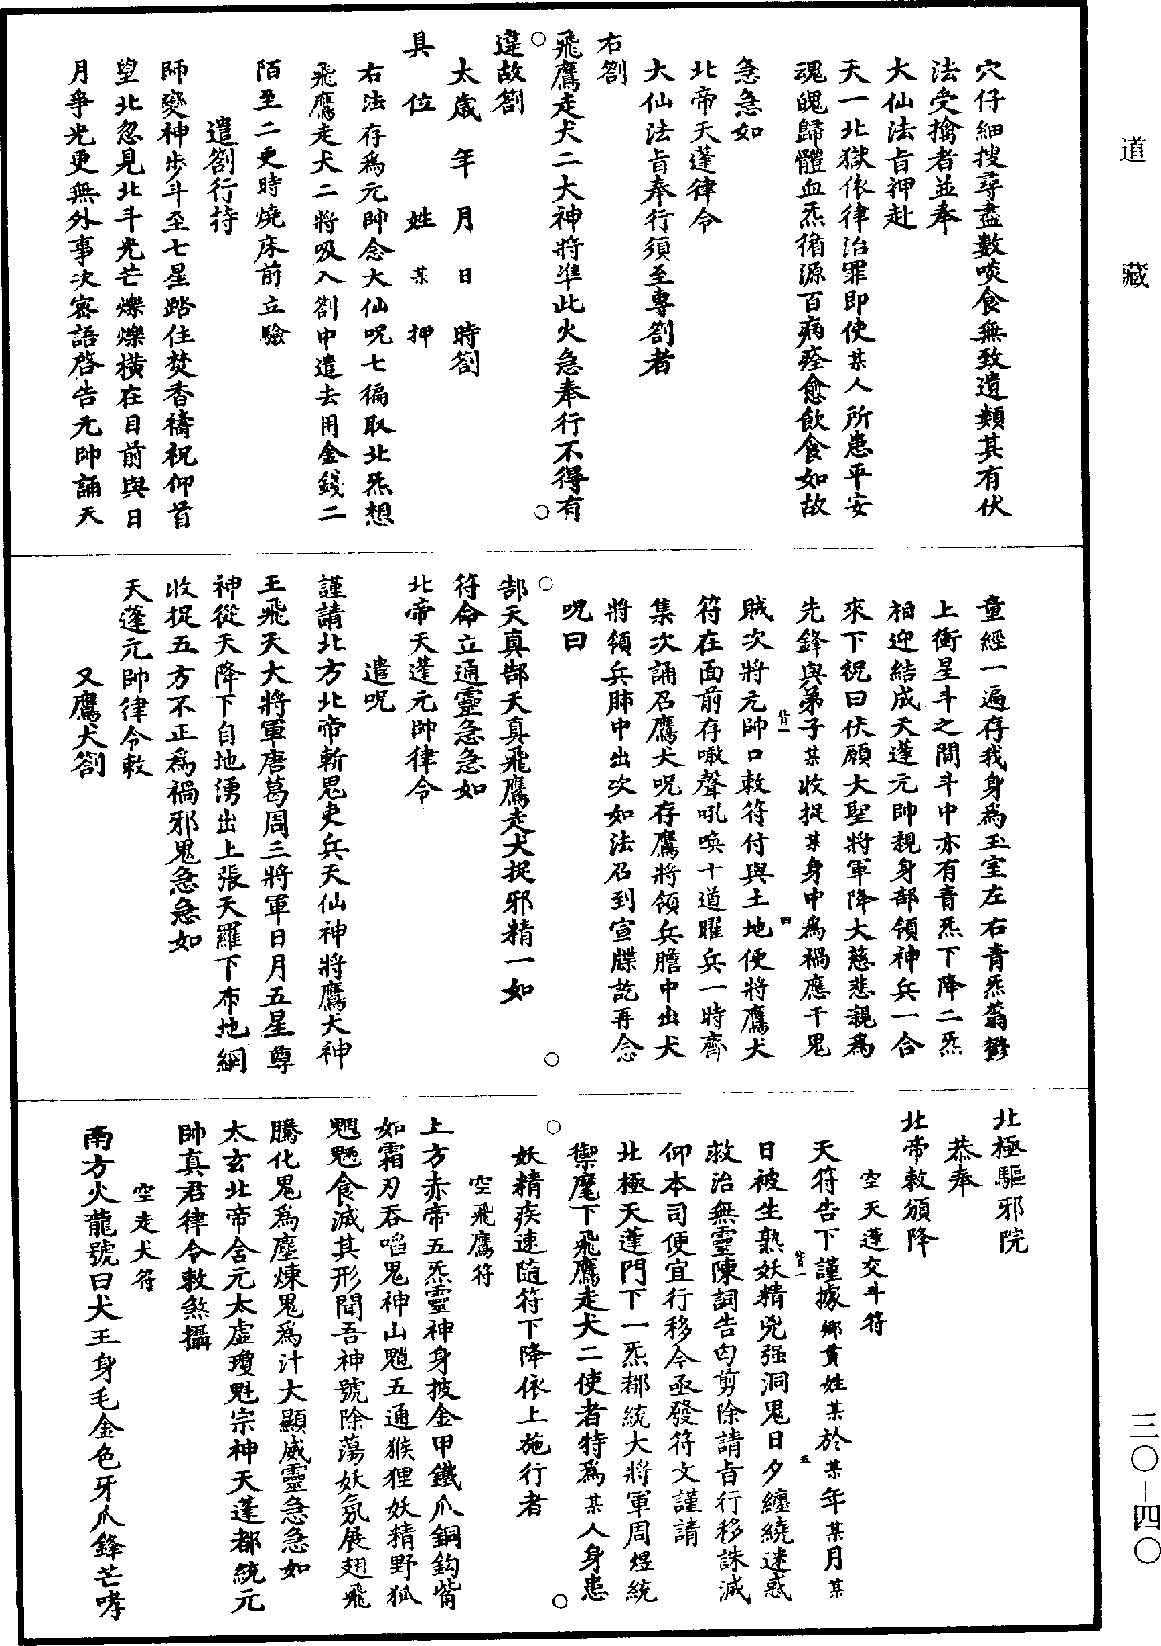 道藏
三〇—四〇
穴仔細搜尋盡數啖食無致遺類其有伏
法受擒者並奉
大仙法旨押赴
天一北獄依律治罪即使某人所患平安
魂魄歸體血炁循源百病痊愈飲食如故
急急如
北帝天蓬律令
大仙法旨奉行須至專劄者
右劄
飛鷹走犬二大神將準此火急奉行不得有
違故劄
太歲年月日時劄
具位姓某押
右法存爲元帥念大仙呪七徧取北炁想
飛鷹走犬二將吸入劄中遣去用金錢二
陌至二更時燒床前立驗
遣劄行持
師變神步斗至七星踏住焚香禱祝仰首
望北忽見北斗光芒爍爍橫在目前與日
月爭光更無外事次密語啓告元帥誦天
童經一遍存我身爲玉室左右青炁蓊鬱
上衝星斗之間斗中亦有青炁下降二炁
相迎結成天蓬元帥親身部領神兵一合
來下祝曰伏願大聖將軍降大慈悲親爲
先鋒與弟子某收捉某身中爲禍應干鬼
賊次將元帥口敕符付與土地便將鷹犬
符在面前存噉聲吼喚十道躍兵一時齊
集次誦召鷹犬呪存鷹將領兵膽中出犬
將領兵肺中出次如法召到宣牒訖再念
呪曰
郜天真郜天真飛鷹走犬捉邪精一如
符命立通靈急急如
北帝天蓬元帥律令
遣呪
謹請北方北帝斬鬼吏兵天仙神將鷹犬神
王飛天大將軍唐葛周三將軍日月五星尊
神從天降下自地湧出上張天羅下布地網
收捉五方不正爲禍邪鬼急急如
天蓬元帥律令敕
又鷹犬劄
北極驅邪院
恭奉
北帝敕頒降
空天蓬交斗符
天符告下謹據鄉貫姓某於某年某月某
日被生熟妖精兇强洞鬼日夕纏繞迷惑
救治無靈陳詞告匄剪除請旨行移誅滅
仰本司便宜行移今亟發符文謹請
北極天蓬門下一炁都統大將軍周煜統
禦麾下飛鷹走犬二使者特爲某人身患
妖精疾速隨符下降依上施行者
空飛鷹符
上方赤帝五炁靈神身披金甲鐵爪銅鈎觜
如霜刃吞啗鬼神山魈五通猴狸妖精野狐
魍魎食滅其形聞吾神號除蕩妖氛展翅飛
騰化鬼爲塵煉鬼爲汁大顯威靈急急如
太玄北帝含元太虛瓊魁宗神天蓬都統元
帥真君律令敕煞攝
空走犬符
南方火龍號曰犬王身毛金色牙爪鋒芒哮